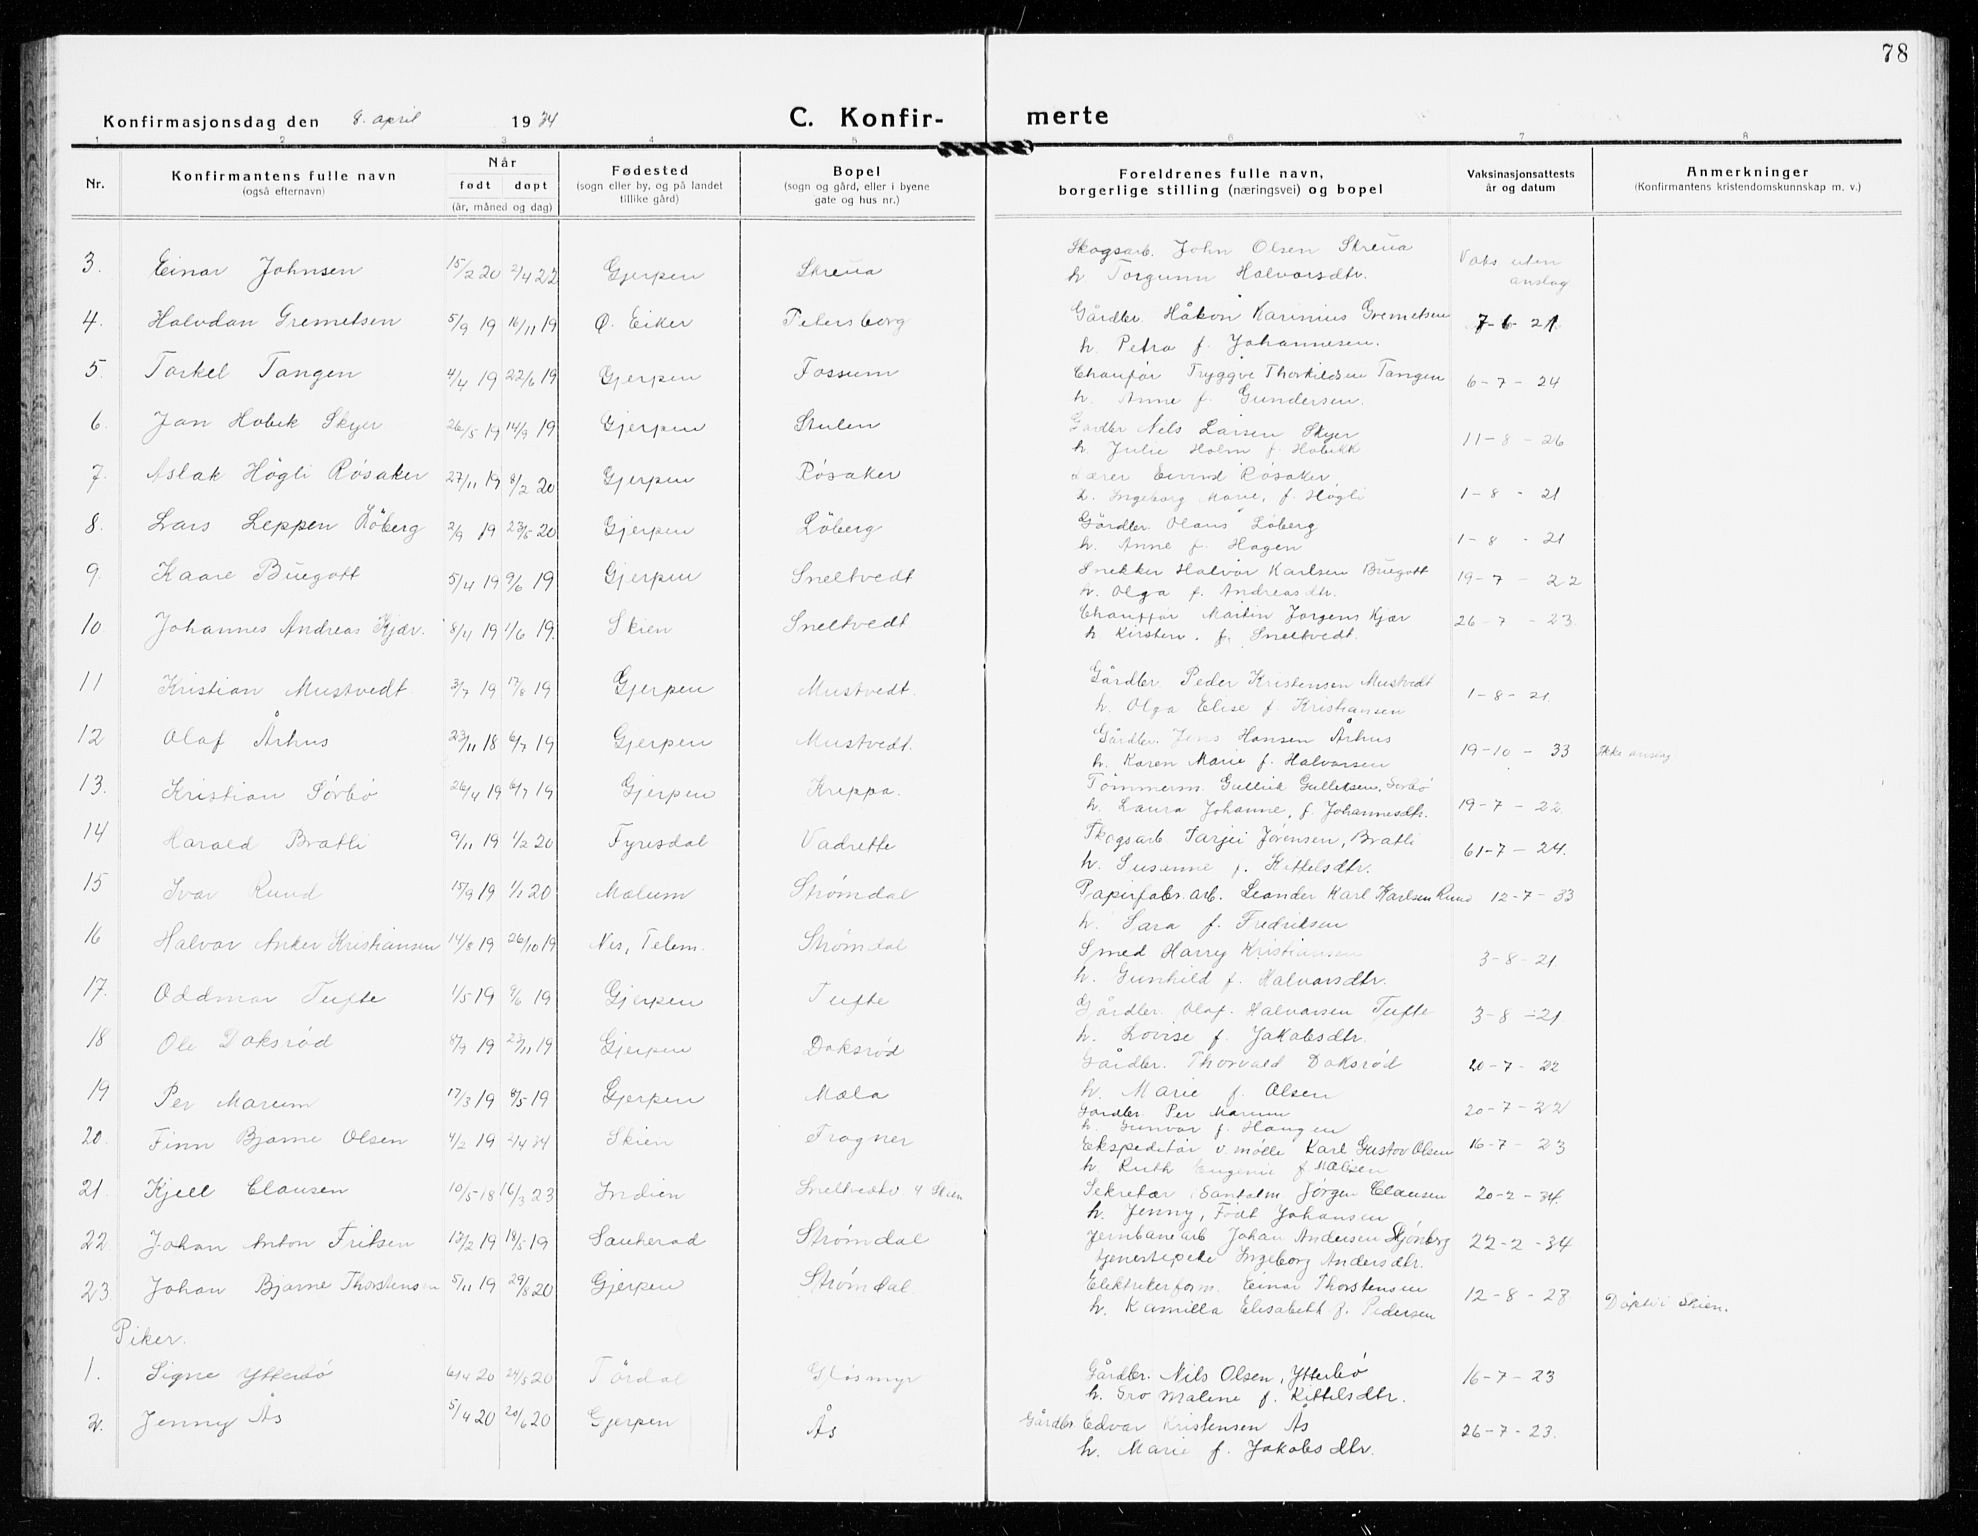 78
Konfirmasjonsdag den 8. april 1934 C. Konfir- merte
1 2 3 4 5 6 7 8
Nr. Konfirmantens fulle navn (også efternavn) Når født døpt (år, måned og dag) Fødested (sogn eller by, og på landet tillike gård) Bopel (sogn og gård, eller i byene gate og hus nr.) Foreldrenes fulle navn, borgerlige stilling (næringsvei) og bopel Vaksinasjonsattests år og datum Anmerkninger (Konfirmantens kristendomskunnskap m. v.)
3. Einar Johnsen 15/2 20 2/4 22 Gjerpen Skreua Skogsarb. John Olsen Skreua Vaks uten
h. Torgunn Halvorsdtr. anslag
4. Halvdan Gremetsen 5/9 19 16/11 19 Ø. Eiker Petersborg Gårdbr. Håkon Karinius Gremetsen 7-6-21.
h. Petra f. Johannesen.
5. Torkel Tangen 4/4 19 22/6 19 Gjerpen Fossum Chaufør Tryggve Thorkildsen Tangen 6-7-24
h. Anne f. Gundersen.
6. Jan Hobek Skyer 26/5 19 14/9 19 Gjerpen Stulen Gårdbr Nels Larsen Skyer 11-8-26
h. Julie Holm f. Hobekk
7. Aslak Högli Røsaker 27/11 19 8/2 20 Gjerpen Røsaker Lærer Eivind Røsaker, 1-8-21
h. Ingeborg Marie, f. Høgli
8. Lars Leppen Löberg 2/9 19 23/5 20 Gjerpen Löberg Gårdbr. Olans Løberg 1-8-21
h. Anne f. Hagen
9. Kaare Buegott 5/4 19 9/6 19 Gjerpen Sneltvedt Snekker Halvor Karlsen Buegott 19-7-22
h. Olga f. Andreasdtr.
10. Johannes Andreas Kjær. 8/4 19 1/6 19. Skien Sneltvedt Chauffør Martin Jørgens Kjær 26-7-23
h Kirsten. f. Sneltvedt.
11 Kristian Mustvedt 3/7 19 17/8 19 Gjerpen Mustvedt. Gårdbr Peder Kristensen Mustvedt 1-8-21
h. Olga Elise f. Kristiansen
12 Olaf Århus 23/11 18 6/7 19 Gjerpen Mustvedt. Gårdbr. Jens Hansen Århus 19-10-33 Ikke anslag
h. Karen Marie f. Halvorsen
13. Kristian Sørbø 26/4 19 6/7 19 Gjerpen Kreppa. Tømmerm. Gullik Gulleksen, Sørbø 19-7-22
h. Laura Johanne, f. Johannesdtr.
14 Harald Bratli 9/11 19 1/2 20 Fyresdal Vadrette Skogsarb Tarjei Jørensen, Bratli 61-7-24.
h. Susanne f. Kittelsdtr.
15 Ivar Ruud 15/9 19 1/1 20 Melum Strømdal Papirfabr. arb. Leander Karl Karlsen Ruud 12-7-33
h. Sara f. Fredriksen
16 Halvor Anker Kristiansen 14/8 19 26/10 19 Nes, Telem. Strømdal Smed Harry Kristiansen 3-8-21
h. Gunhild f. Halvorsdtr.
17. Oddmar Tufte 1/5 19 9/6 19 Gjerpen Tufte Gårdbr. Olaf. Halvorsen Tufte 3-8-21
h. Lovise f. Jakobsdtr.
18 Ole Doksrød 8/9 19 23/11 19 Gjerpen Doksrød Gårdbr. Thorvald Doksrød 20-7-22
h. Marie f. Olsen
19 Per Marum 17/3 19 8/5 19 Gjerpen Mæla Gårdbr Per Marum 20-7-22
h. Gunvor f. Haugen
20. Finn Bjarne Olsen 4/2 19 2/4 34 Skien Frogner Ekspeditør v. mølle Karl Gustov Olsen 16-7-23
h. Ruth Eugenie f. Nelsen
21. Kjell Clausen 10/5 18 16/3 23 Indien Sneltvedtv 4 Skien Sekretær i Santalm Jørgen Clausen 20-2-34.
h. Jenny, Født Johansen
22. Johan Anton Fritsen 13/2 19 18/5 19 Sauherad Strømdal Jernbanearb Johan Andersen 22-2-34
tjenestepike Ingeborg Andersdtr.
23 Johan Bjarne Thorstensen 5/11 19 29/8 20 Gjerpen Strømdal. Elektrikerform. Einar Thorstensen 12-8-28 Döpt i Skien.
h. Kamilla Elisabeth f. Pedersen
Piker.
1. Signe Ytterbø 6/4 20 24/5 20 Tördal Gløsmyr Gårdbr. Nils Olsen, Ytterbø 16-7-23
h. Gro Malene f. Kittelsdtr.
2. Jenny Ås 5/4 20 20/6 20 Gjerpen Ås Gårdbr. Edvar Kristensen Ås 26-7-23.
h. Marie f. Jakobsdtr.